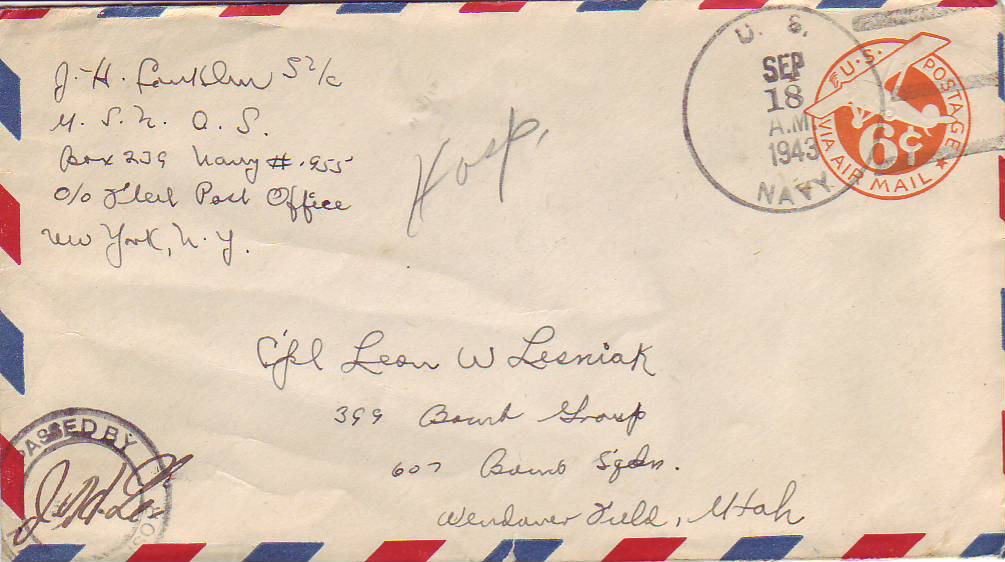 J. H. S 2/c
U. S. N. O. S.
Box 239 Navy #. 955
c/o Fleet Post Office
New York, N. Y.
Hosp.
U. S.
SEP
18
A.M
1943
NAVY
U.S. POSTAGE
6¢
VIA AIR MAIL
Cpl Leon W Lesniak
399 Bomb Group
607 Bomb Sqdn.
Wendover Field, Utah
PASSED BY